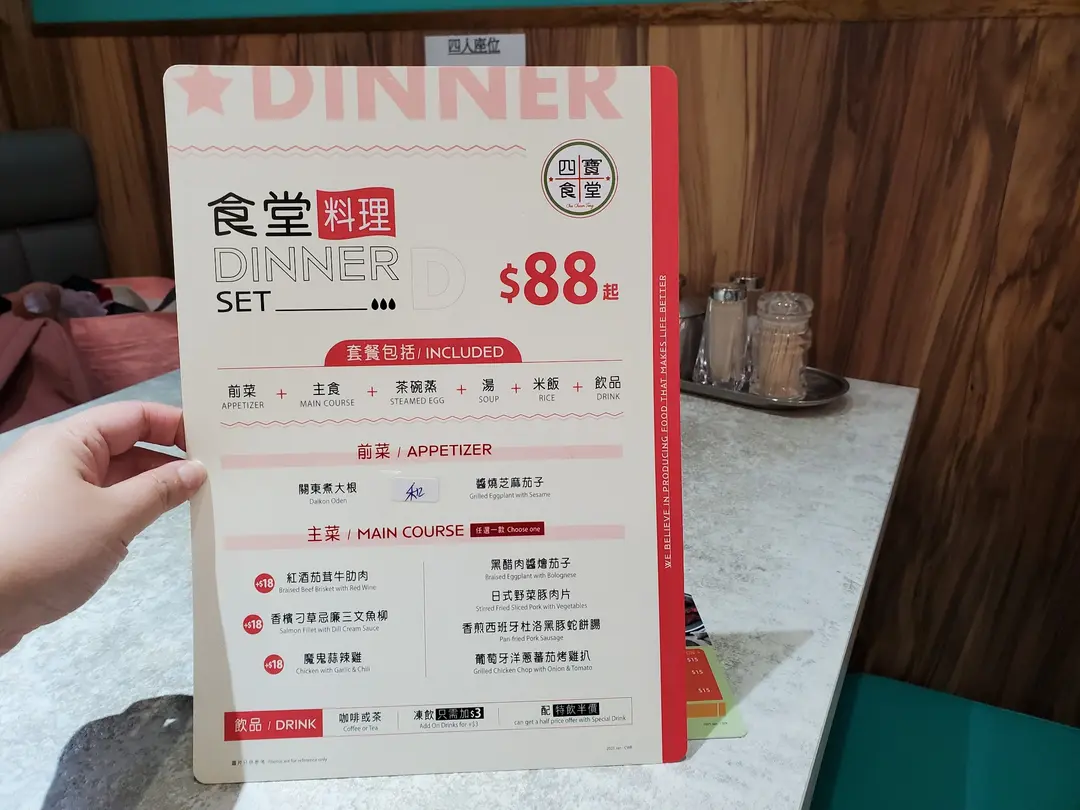 四人座位
DINNER
四寶
食堂
食堂料理
DINNER
SET
D
$88起
套餐包括/ INCLUDED
前菜 + 主食 + 茶碗蒸 + 湯 + 米飯 + 飲品
APPETIZER MAIN COURSE STEAMED EGG SOUP RICE DRINK
前菜 / APPETIZER
關東煮大根 和 醬燒芝麻茄子
Daikon Oden Grilled Eggplant with Sesame
主菜 / MAIN COURSE 任選一款 Choose one
+$18 紅酒茄茸牛肋肉
Braised Beef Brisket with Red Wine
+$18 香檳刁草忌廉三文魚柳
Salmon Fillet with Dill Cream Sauce
+$18 魔鬼蒜辣雞
Chicken with Garlic & Chili
黑醋肉醬燴茄子
Braised Eggplant with Bolognese
日式野菜豚肉片
Stirred Fried Sliced Pork with Vegetables
香煎西班牙杜洛黑豚蛇餅腸
Pan-fried Pork Sausage
葡萄牙洋蔥蕃茄烤雞扒
Grilled Chicken Chop with Onion & Tomato
飲品 / DRINK
咖啡或茶
Coffee or Tea
凍飲只需加$3
Add On Drinks for +$3
配特飲半價
can get a half price offer with Special Drink
WE BELIEVE IN PRODUCING FOOD THAT MAKES LIFE BETTER
$15
$15
$15